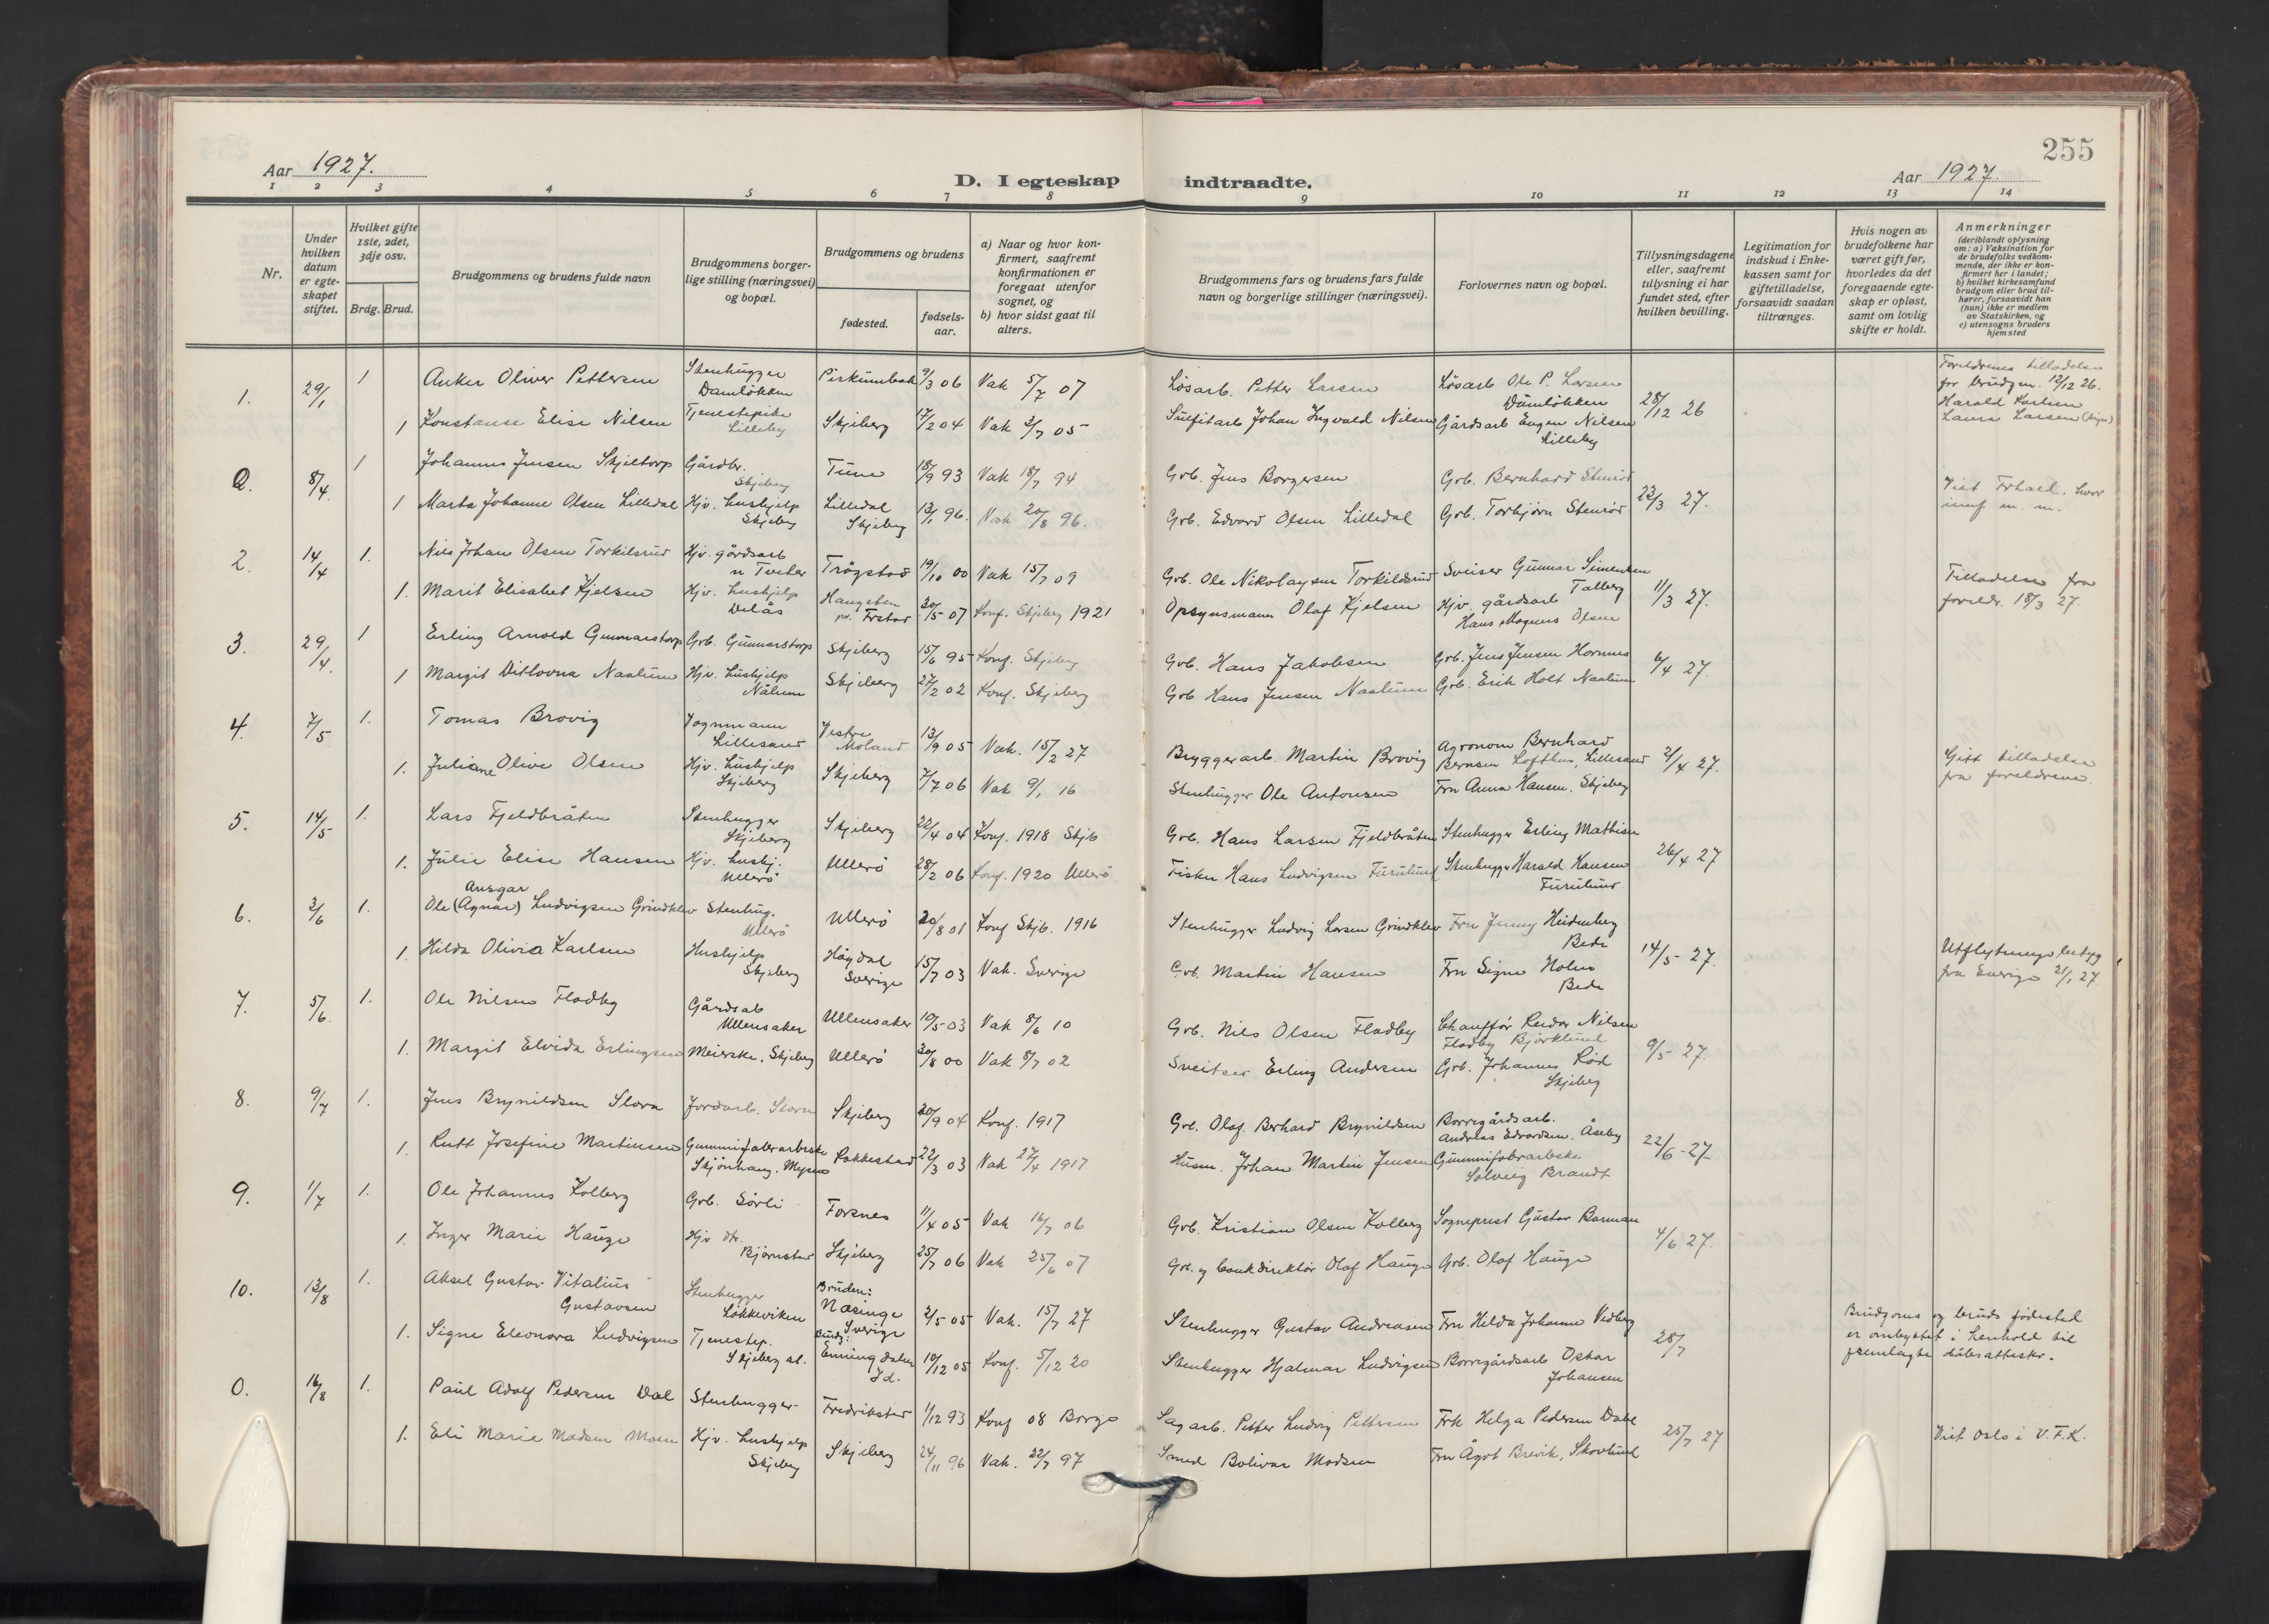 255
Aar 1927.
D. I egteskap indtraadte.
Aar 1927.
1 2 3 4 5 6 7 8 9 10 11 12 13 14
Nr.
Under hvilken datum er egte-skapet stiftet.
Hvilket gifte 1ste, 2det, 3dje osv.
Brdg. Brud.
Brudgommens og brudens fulde navn
Brudgommens borger-lige stilling (næringsvei) og bopæl.
Brudgommens og brudens
fødested.
fødsels-aar.
a) Naar og hvor kon-firmert, saafremt konfirmationen er foregaat utenfor sognet, og
b) hvor sidst gaat til alters.
Brudgommens fars og brudens fars fulde navn og borgerlige stillinger (næringsvei).
Forlovernes navn og bopæl.
Tillysningsdagene eller, saafremt tillysning ei har fundet sted, efter hvilken bevilling.
Legitimation for indskud i Enke-kassen samt for giftetilladelse, forsaavidt saadan tiltrænges.
Hvis nogen av brudefolkene har været gift før, hvorledes da det foregaaende egte-skap er opløst, samt om lovlig skifte er holdt.
Anmerkninger
(deriblandt oplysning om: a) Vaksination for de brudefolks vedkom-mende, der ikke er kon-firmert her i landet; b) hvilket kirkesamfund brudgom eller brud til-hører, forsaavidt han (hun) ikke er medlem av Statskirken, og c) utensogns bruders hjemsted
1. 29/1 1 Anker Oliver Pettersen Stenhugger Damløkken 9/3 06 Vak 5/7 07 Løsarb. Petter Larsen Løsarb Ole P. Larsen Damløkken 28/12 26 Foreldrenes tilladelse for brudgm. 12/12 26. Harald Karlsen Laura Larsen
1 Konstanse Elise Nilsen Tjenestepike Lilleby Skjeberg 17/2 04 Vak 3/7 05 Sulfitarb Johan Ingvald Nilsen Gårdsarb Eugen Nilsen Lilleby
Q. 8/4 1 Johannes Jensen Skjeltorp Gårdbr. Skjeberg Tune 18/9 93 Vak 18/7 94 Grb. Jens Borgersen Grb. Bernhard Stenrød 23/3 27. Viet
1 Marta Johanne Olsen Lilledal Hjv. hushjelp Skjeberg Lilledal Skjeberg 13/1 96. Vak 20/8 96. Grb. Edvard Olsen Lilledal Grb. Torbjørn Stenrød
2. 14/4 1. Nils Johan Olsen Torkilsrud Hjv. gårdsarb n Tveter Trøgstad 19/10 00 Vak 15/7 09 Grb. Ole Nikolaysen Torkildsrud Sveiser Gunnar Simensen Talberg 11/3 27. Tilladelse fra foreldr. 18/3 27.
1. Marit Elisabet Kjelsen Hjv. hushjelp Delås Haugsten pr. Frstad 30/5 07 Konf. Skjeberg 1921 Opsynsmann Olaf Kjelsen Hjv. gårdsarb Hans Magnus Olsen
3. 29/4. 1 Erling Arnold Gunnarstorp Grb. Gunnarstorp Skjeberg 15/6 95 Konf. Skjeberg Grb. Hans Jakobsen Grb. Jens Jensen Hornnes 6/4 27.
1 Margit Ditlovna Naalum Hjv. hushjelp Nålum Skjeberg 27/2 02 Konf. Skjeberg Grb Hans Jensen Naalum Grb. Erik Holt Naalum
4. 7/5 1. Tomas Brovig Vognmann Lillesand Vestre Moland 13/9 05 Vak. 15/2 27 Bryggerarb. Martin Brovig Agronom Bernhard Berntsen Lofthus, Lillesand 21/4 27. Gift tilladelse fra foreldrene
1. Juliane Olive Olsen Hjv. hushjelp Skjeberg Skjeberg 7/7 06 Vak 9/1 16 Stenhugger Ole Antonsen Fru Anna Hansen, Skjeberg
5. 14/5 1. Lars Fjeldbråten Stenhugger Skjeberg Skjeberg 22/4 04 Konf. 1918 Skjb Grb. Hans Larsen Fjeldbråten Stenhugger Erling Mathisen 26/4 27
1. Julie Elise Hansen Hjv. hushj. Ullerø Ullerø 28/2 06 Konf. 1920 Ullerø Fisker Hans Ludvigsen Furulund Stenhugger Harald Hansen Furulund.
6. 3/6 1. Ole (Agnar) Ansgar Ludvigsen Grindklev Stenhug. Ullerø Ullerø 20/8 01 Konf Skjb. 1916 Stenhugger Ludvig Larsen Grindklev Fru Jenny Heidenberg Bede 14/5 27. Utflytningsbetyg fra Sverige 21/1 27.
1. Hilda Olivia Karlsen Hushjelp Skjeberg Høgdal Sverige 15/7 03 Vak. Sverige Grb. Martin Hansen Fru Signe Holm Bede
7. 5/6. 1. Ole Nilsen Fladby Gårdsab Ullensaker Ullensaker 19/5 03 Vak 8/6 10 Grb. Nils Olsen Fladby Chauffør Reidar Nilsen Fladby Bjørklund 9/5 27.
1. Margit Elvida Erlingsen Meierske, Skjeberg Ullerø 30/8 00 Vak 8/7 02 Sveitser Erling Andersen Grb. Johannes Rød Skjeberg
8. 9/7 1. Jens Brynildsen Slora Jordarb. Slora Skjeberg 20/9 04 Konf. 1917 Grb. Olaf Berhard Brynildsen Borregårdsarb. Andreas Edvardsen, Åseby 22/6 27
1. Rutt Josefine Martinsen Gummifabrarbeske Skjønhaug. Mysen Rakkestad 22/3 03 Vak 27/4 1917 Husm. Johan Martin Jensen Gummifabrarbeske Solveig Brandt
9. 1/7 1. Ole Johannes Kolberg Grb. Sørli Forsnes 11/4 05 Vak 16/7 06 Grb. Kristian Olsen Kolberg Sogneprest Gustav Barman 4/6 27.
1. Inger Marie Hauge Hjv dtr. Bjørnstad Skjeberg 25/7 06 Vak 25/6 07 Grb. og bankdirektør Olaf Hauge Grb. Olaf Hauge
10. 13/8 1. Aksel Gustav Vitalius Gustavsen Stenhugger Løkkeviken Bruden: Næsinge Sverige 2/5 05 Vak. 15/7 27 Stenhugger Gustav Andreasen Fru Hilda Johanne Vedberg 28/7 Brudgoms og bruds fødested er ombyttet i henhold til fremlagte dåbsattester.
1. Signe Eleonora Ludvigsen Tjenestep. Skjeberg st. Brudg: Enningdalen Id. 10/12 05 Konf. 5/12 20 Stenhugger Hjalmar Ludvigsen Borregårdsarb Oskar Johansen
O. 16/8 1. Paul Adolf Pedersen Dal Stenhugger Fredrikstad 1/12 93 Konf 08 Borge Sagarb. Petter Ludvig Pettersen Frk Helga Pedersen Dahl 25/7 27 Viet Oslo i V.F.K.
1. Eli Marie Madsen Moen Hjv. hushjelp Skjeberg Skjeberg 24/11 96 Vak. 22/7 97 Smed Bolivar Madsen Fru Ågot Brevik, Skovlund